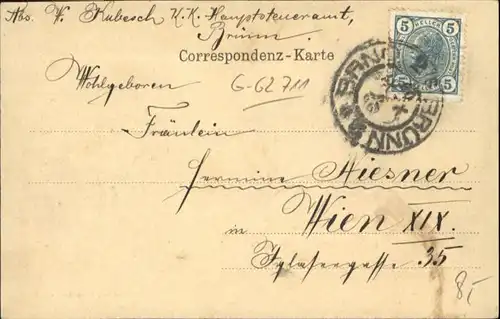 Abs. V. Kubesch K.K. Hauptsteueramt,
Brünn
Correspondenz-Karte
5 5
5 5
BRNO BRÜNN
Wohlgeboren
G-62711
Fräulein
Hermine Aiesner
Wien XIX.
in
Iglasergasse 35
8,-